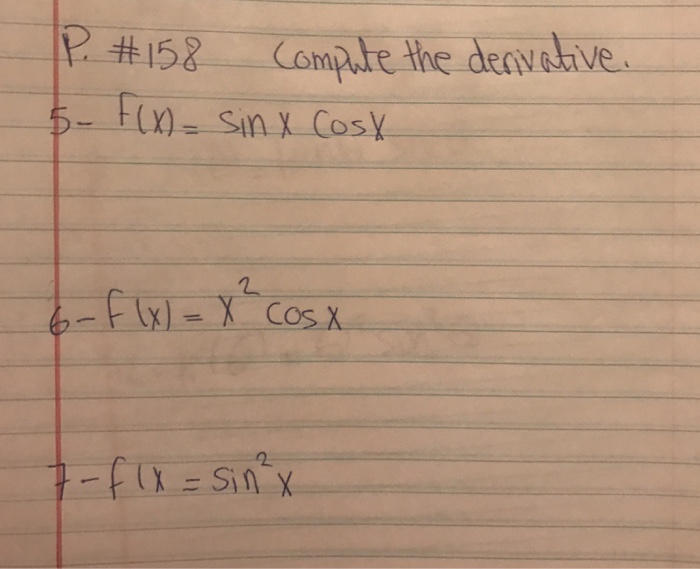 P. #158 Compute the derivative.
5- f(x) = sin x cos x
6- f(x) = x² cos x
7- f(x = sin² x